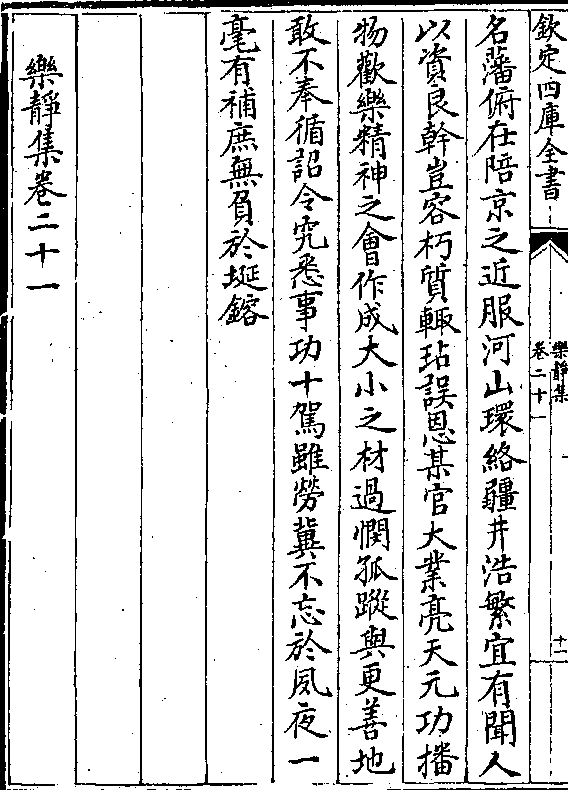 欽定四庫全書
樂靜集
卷二十一
十一
名藩俯在陪京之近服河山環絡疆井浩繁宜有聞人
以資良幹豈容朽質輙玷誤恩某官大業亮天元功播
物歡樂精神之會作成大小之材過憫孤蹤與更善地
敢不奉循詔令究悉事功十駕雖勞冀不忘於夙夜一
毫有補庶無負於埏鎔
樂靜集卷二十一